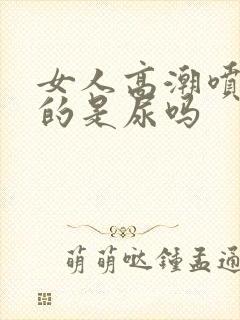 女人高潮喷
的是尿吗
萌萌哒鍾孟通